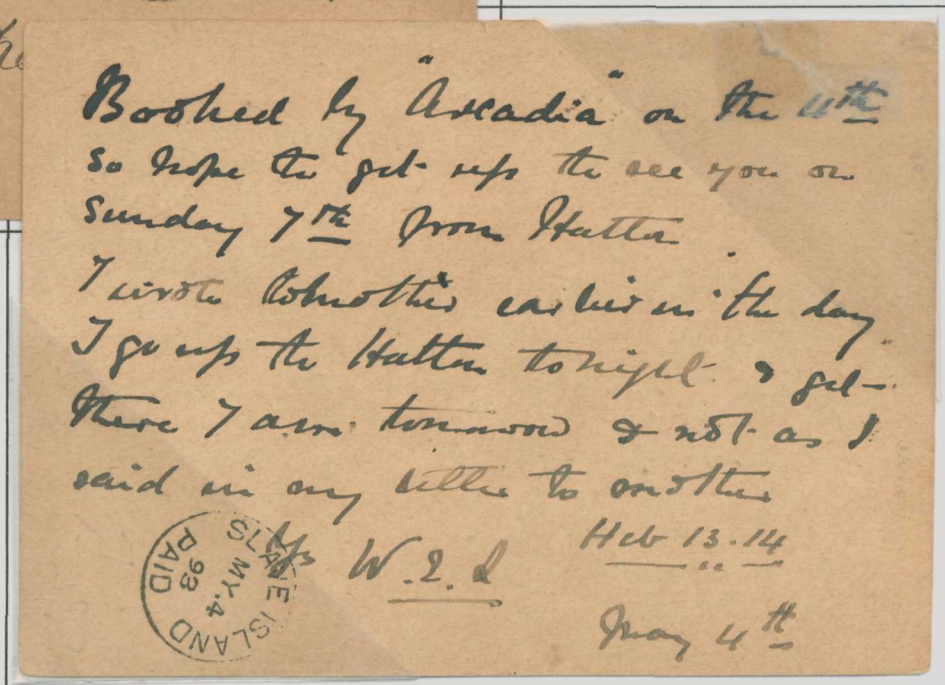 Booked by "Arcadia" on the 11th
so hope to get up to see you on
Sunday 7th from Hatton.
I wrote to mother earlier in the day
I go up to Hatton tonight & get
there 7 a.m. tomorrow & not as I
said in my letter to mother
Yrs W.E.S
Heb 13.14
May 4th
SLAVE ISLAND
MY.4
93
PAID